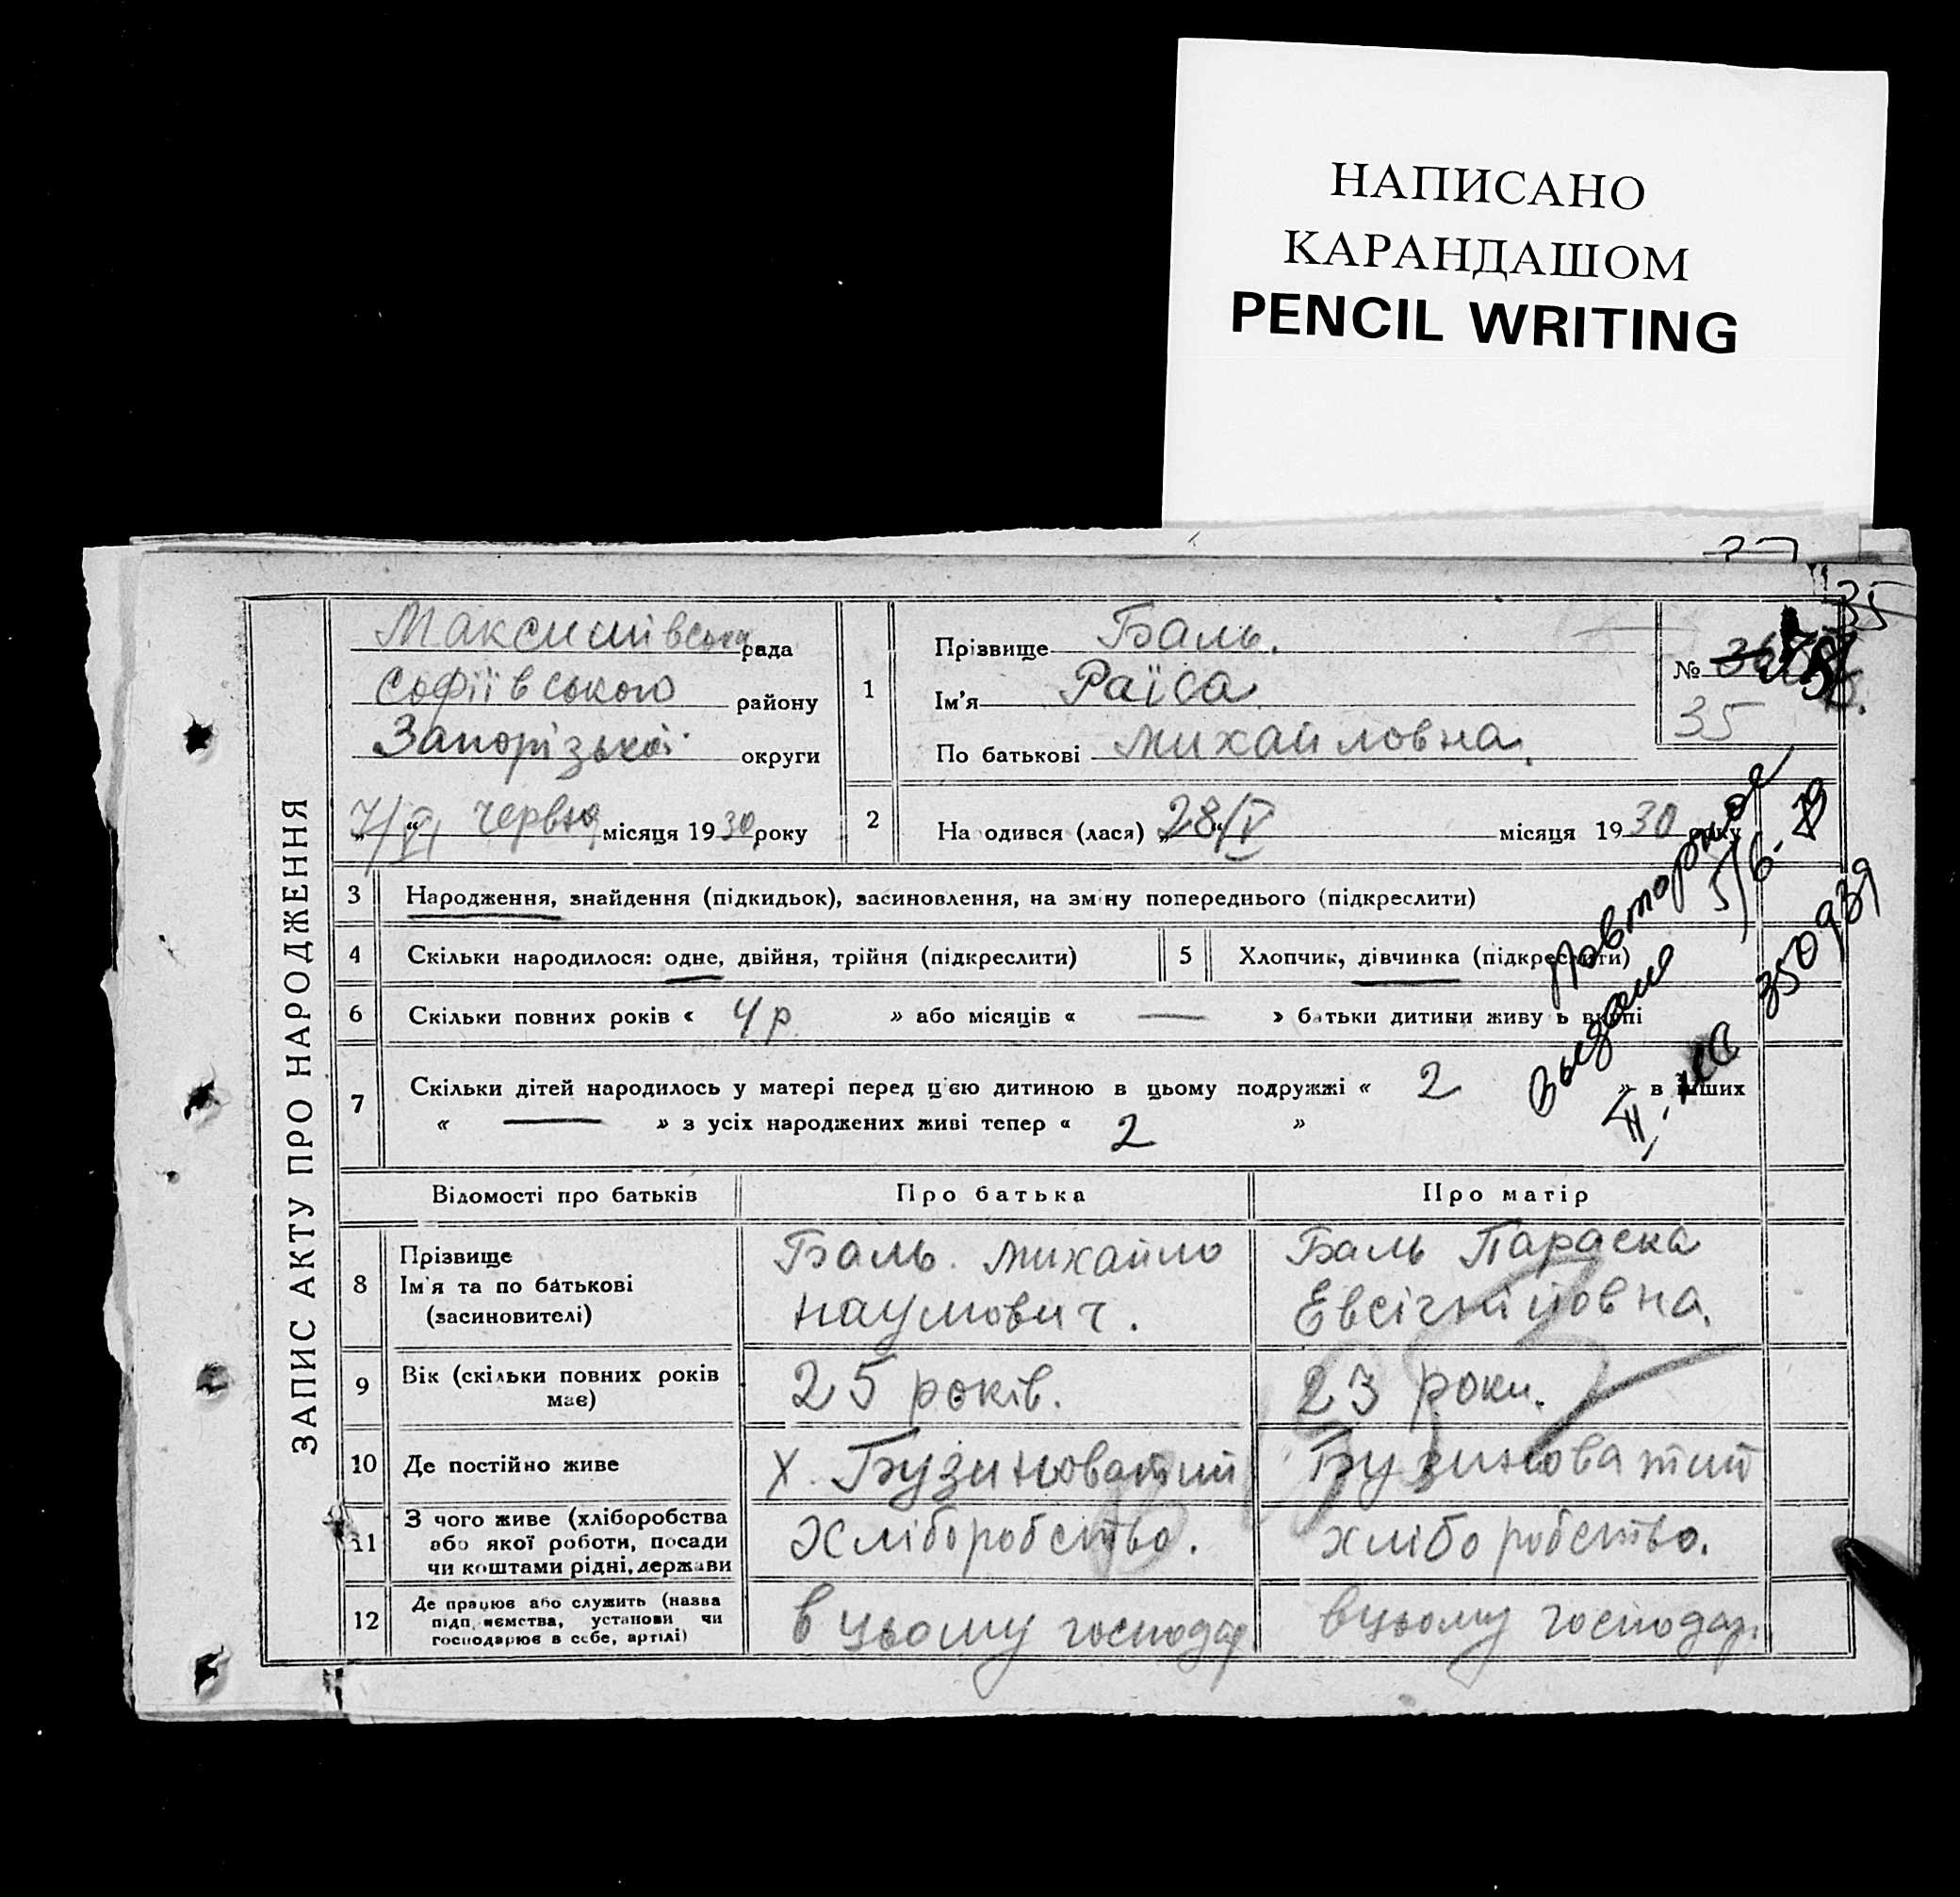 НАПИСАНО
КАРАНДАШОМ
PENCIL WRITING
35
ЗАПИС АКТУ ПРО НАРОДЖЕННЯ
Максимівська рада
Софіївського району
Запорізької округи
7/VI червня місяця 1930 року
1
Прізвище Баль.
Ім'я Раїса
По батькові Михайловна.
№
35
2
На одився (лася) „28/V“ місяця 1930 року
3 Народження, знайдення (підкидьок), засиновлення, на зміну попереднього (підкреслити)
4 Скільки народилося: одне, двійня, трійня (підкреслити)
5 Хлопчик, дівчинка (підкреслити)
6 Скільки повних років « 4 р. » або місяців « — » батьки дитини живу ь вкупі
7 Скільки дітей народилось у матері перед цією дитиною в цьому подружжі « 2 » в інших
« — » з усіх народжених живі тепер « 2 »
Повторное
выдано 5/6-79
II-ЯС 350939
Відомості про батьків Про батька Про матір
8 Прізвище
Ім'я та по батькові
(засиновителі)
Баль. Михайло
Наумович.
Баль Параска
Евсігнійовна.
9 Вік (скільки повних років
має)
25 років.
23 роки.
10 Де постійно живе
х. Бузиноватий
Бузиноватий
11 З чого живе (хліборобства
або якої роботи, посади
чи коштами рідні, держави
Хліборобство.
хліборобство.
12 Де працює або служить (назва
підп иємства, установи чи
господарює в себе, артілі)
в цьому господар
в цьому господар.